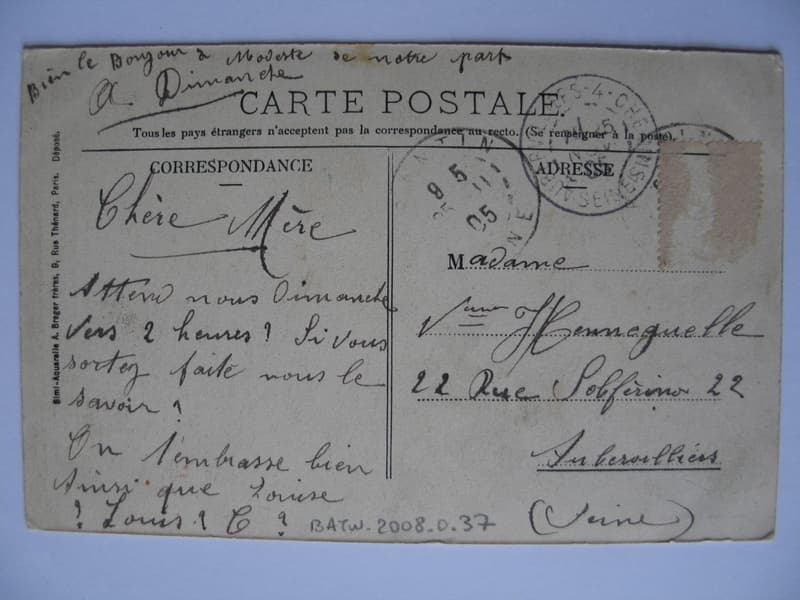 Bien le Bonjour à Modeste de notre part
A Dimanche
CARTE POSTALE
Tous les pays étrangers n'acceptent pas la correspondance au recto. (Se renseigner à la poste).
CORRESPONDANCE
Chère Mère
Attend nous Dimanche
vers 2 heures? Si vous
sortez faite nous le
savoir?
On t'embrasse bien
Ainsi que Louise
? Louis? C?
BATW-2008.0.37
ADRESSE
Madame
Veuve Hennequelle
22 Rue Solférino 22
Aubervilliers
(Seine)
PANTIN
9 5
11
05
SEINE
Simi-Aquarelle A. Breger frères, 9, Rue Thénard, Paris. Déposé.